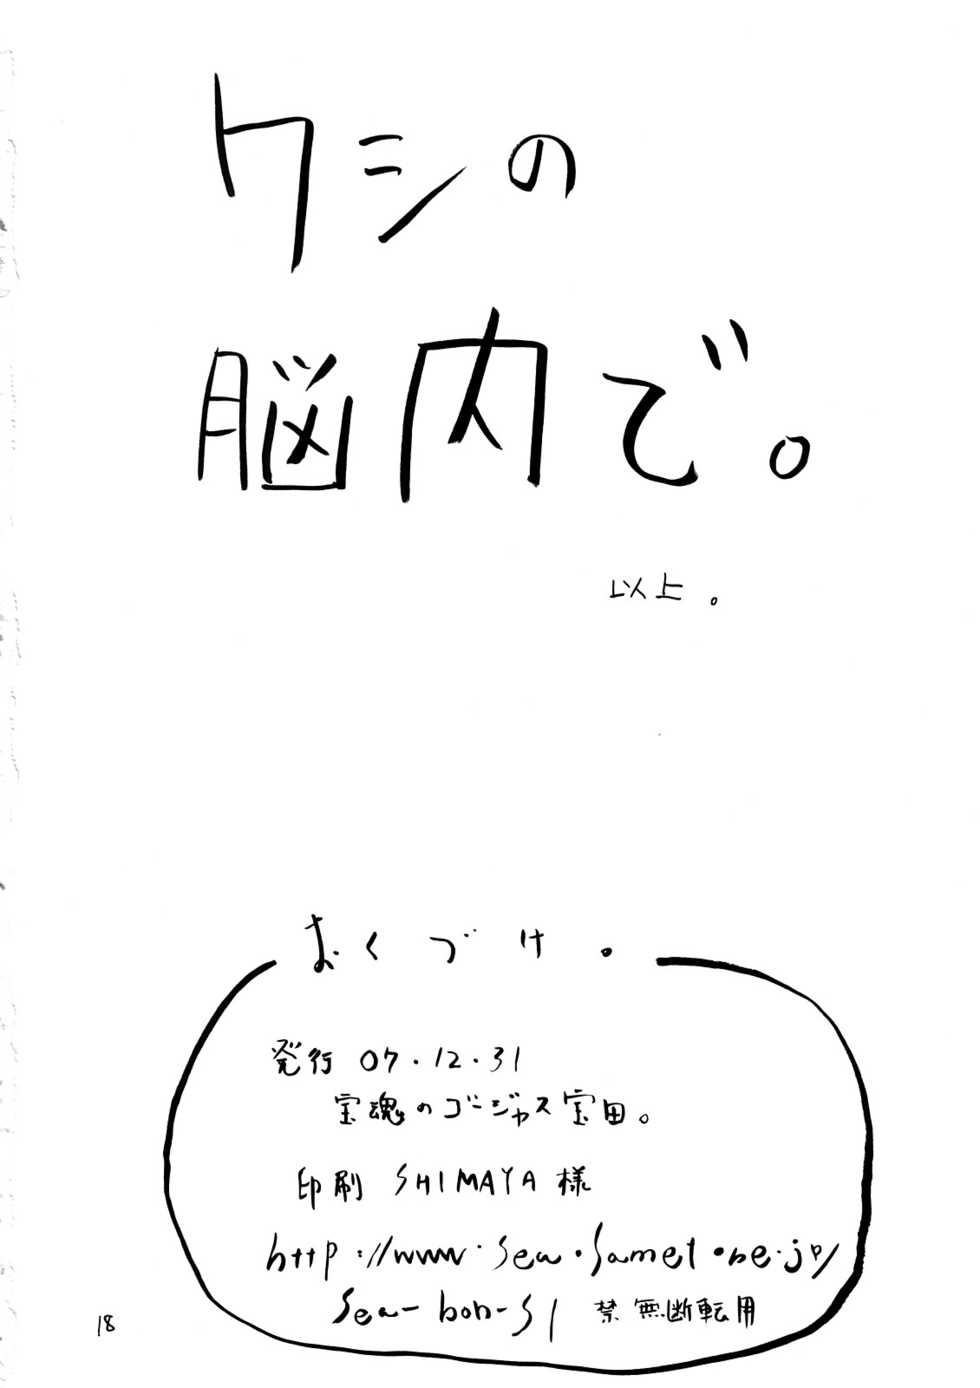 ワシの
脳内で。
以上。
おくづけ。
発行 07.12.31
宝魂のゴージャス宝田。
印刷 SHIMAYA 様
http://www.sea.samet.ne.jp/
sea-bon-s/
禁無断転用
18